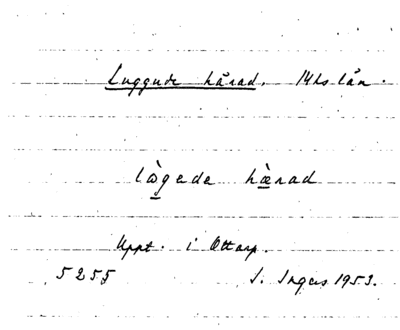 Luggude härad. Mhs län.
lø̀gede hæ̀rad
Uppt. i Ottarp.
5255 I. Ingers 1953.